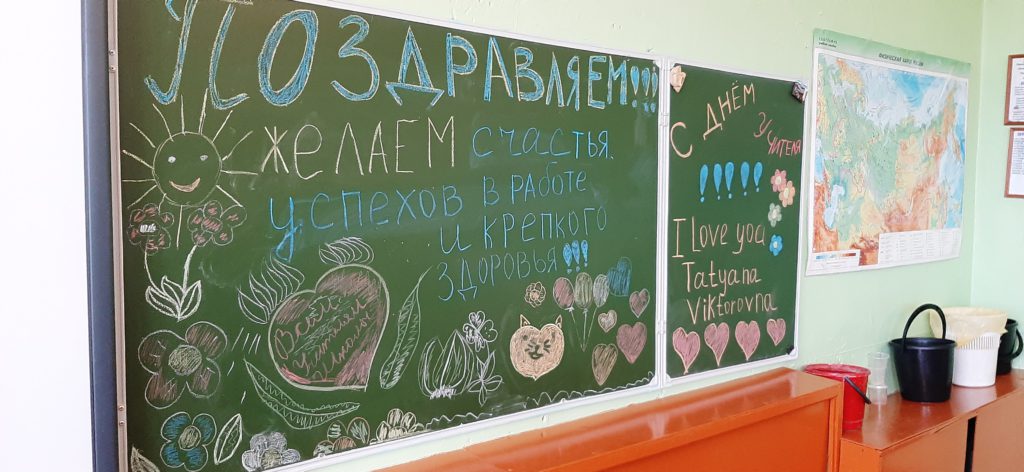 ПОЗДРАВЛЯЕМ!!!
ЖЕЛАЕМ счастья,
успехов в работе
и крепкого
здоровья!!!
Всем
учителям
школы
С ДНЁМ
УЧИТЕЛЯ
!!!!!
I Love you
Tatyana
Viktorovna
ФИЗИЧЕСКАЯ КАРТА РОССИИ